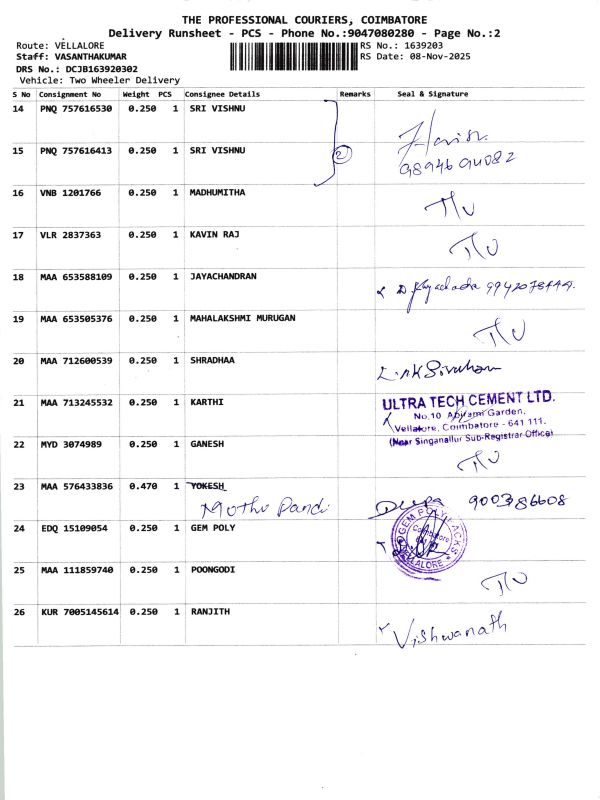 THE PROFESSIONAL COURIERS, COIMBATORE
Delivery Runsheet - PCS - Phone No.:9047080280 - Page No.:2
Route: VELLALORE RS No.: 1639203
Staff: VASANTHAKUMAR RS Date: 08-Nov-2025
DRS No.: DCJB163920302
Vehicle: Two Wheeler Delivery
S No Consignment No Weight PCS Consignee Details Remarks Seal & Signature
14 PNQ 757616530 0.250 1 SRI VISHNU
15 PNQ 757616413 0.250 1 SRI VISHNU 2
9894694082
16 VNB 1201766 0.250 1 MADHUMITHA
17 VLR 2837363 0.250 1 KAVIN RAJ
18 MAA 653588109 0.250 1 JAYACHANDRAN
19 MAA 653505376 0.250 1 MAHALAKSHMI MURUGAN
20 MAA 712600539 0.250 1 SHRADHAA
21 MAA 713245532 0.250 1 KARTHI
ULTRA TECH CEMENT LTD.
No.10 Abirami Garden,
Vellalore, Coimbatore - 641 111.
(Near Singanallur Sub-Registrar Office)
22 MYD 3074989 0.250 1 GANESH
23 MAA 576433836 0.470 1 YOKESH
Muthu Pandi Deepa 900386608
24 EDQ 15109054 0.250 1 GEM POLY
GEM POLY PACKS
Coimbatore
VELLALORE
25 MAA 111859740 0.250 1 POONGODI
26 KUR 7005145614 0.250 1 RANJITH
Vishwanath